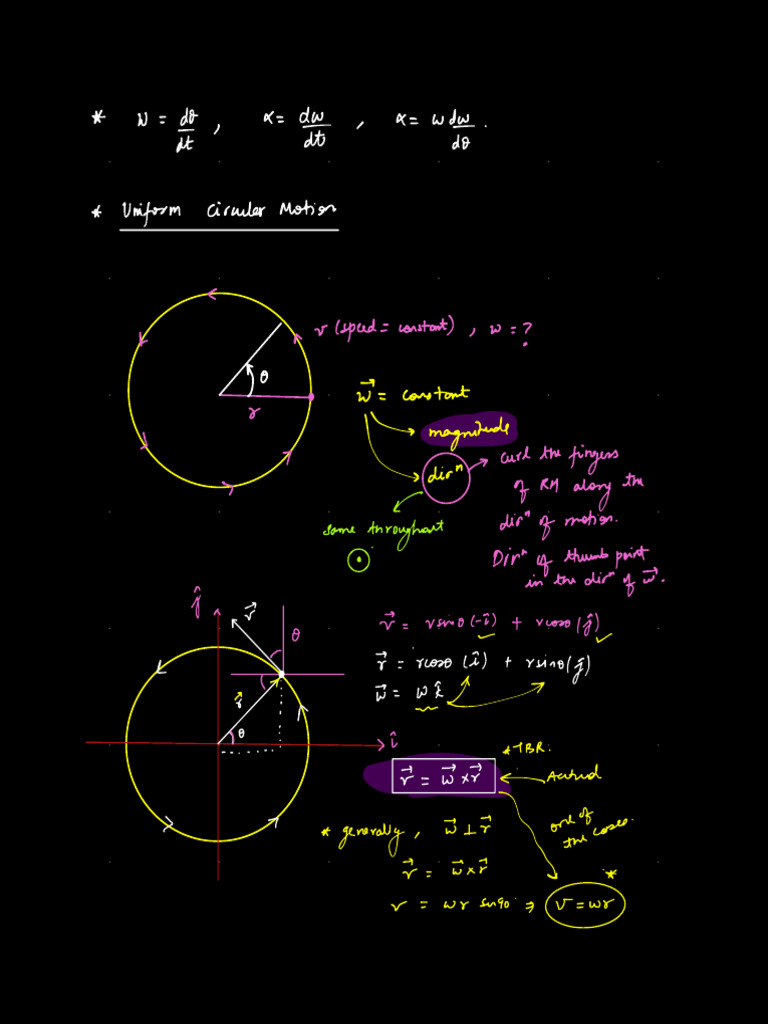 * ω = dθ/dt , α = dω/dt , α = ω dω/dθ .
* Uniform Circular Motion
v (speed = constant) , ω = ?
θ
r
ω⃗ = constant
magnitude
dirⁿ
curl the fingers
of RH along the
dirⁿ of motion.
Dirⁿ of thumb point
in the dirⁿ of ω⃗.
same throughout
ĵ
v⃗
θ
v⃗ = v sinθ (-î) + v cosθ (ĵ)
r⃗ = r cosθ (î) + r sinθ (ĵ)
ω⃗ = ω k̂
r⃗
θ
î
* TBR.
v⃗ = ω⃗ × r⃗
Actual
one of
the cases.
* generally, ω⃗ ⊥ r⃗
v⃗ = ω⃗ × r⃗
*
v = ωr sin90 ⇒ v = ωr